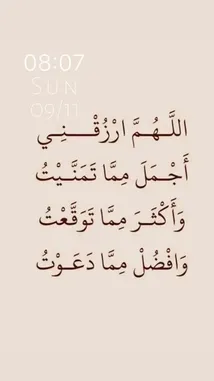 08:07
SUN
09/11
اللَّـهُـمَّ ارْزُقْـــنِـي
أَجْـمَلَ مِمَّا تَمَنَّـيْتُ
وَأَكْـثَـرَ مِمَّا تَوَقَّعْتُ
وَافْضُلْ مِمَّا دَعَـوْتُ